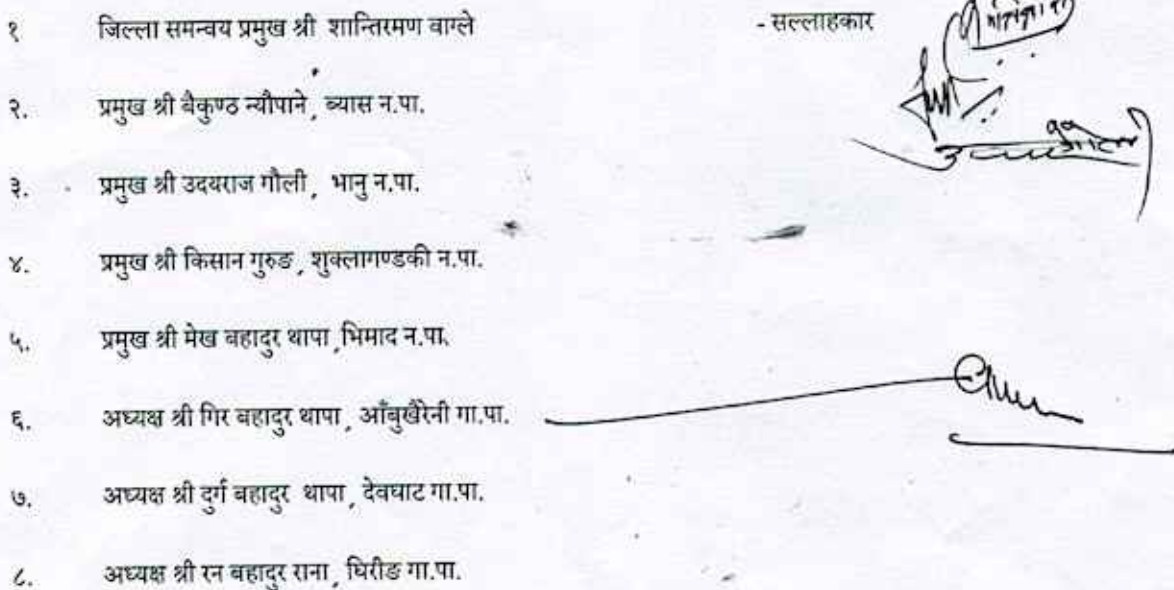 १ जिल्ला समन्वय प्रमुख श्री शान्तिरमण वाग्ले - सल्लाहकार
२. प्रमुख श्री बैकुण्ठ न्यौपाने, ब्यास न.पा.
३. प्रमुख श्री उदयराज गौली, भानु न.पा.
४. प्रमुख श्री किसान गुरुङ, शुक्लागण्डकी न.पा.
५. प्रमुख श्री मेख बहादुर थापा, भिमाद न.पा.
६. अध्यक्ष श्री गिर बहादुर थापा, आँबुखैरेनी गा.पा.
७. अध्यक्ष श्री दुर्ग बहादुर थापा, देवघाट गा.पा.
८. अध्यक्ष श्री रन बहादुर राना, घिरीङ गा.पा.